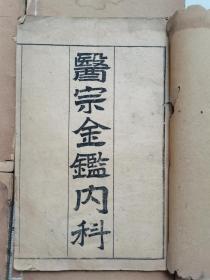 醫宗金鑑内科